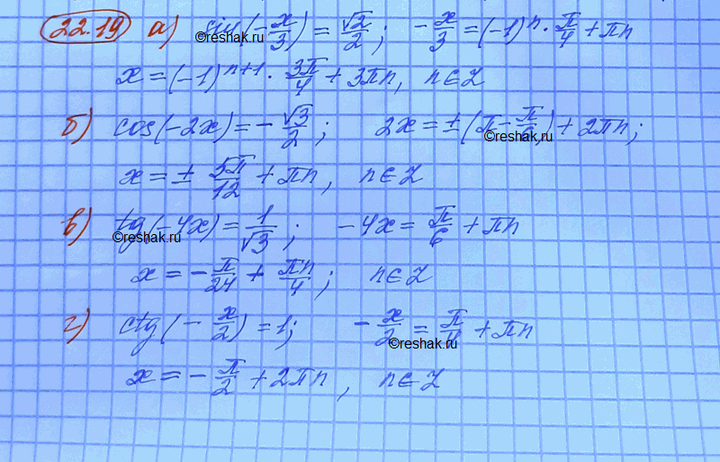 22.19 а) sin(-x/3) = √2/2; -x/3 = (-1)^n · π/4 + πn
x = (-1)^{n+1} · 3π/4 + 3πn, n∈Z
б) cos(-2x) = -√3/2; 2x = ±(π - π/6) + 2πn;
x = ± 5π/12 + πn, n∈Z
в) tg(-4x) = 1/√3; -4x = π/6 + πn
x = -π/24 + πn/4; n∈Z
г) ctg(-x/2) = 1; -x/2 = π/4 + πn
x = -π/2 + 2πn, n∈Z
©reshak.ru
©reshak.ru
©reshak.ru
©reshak.ru